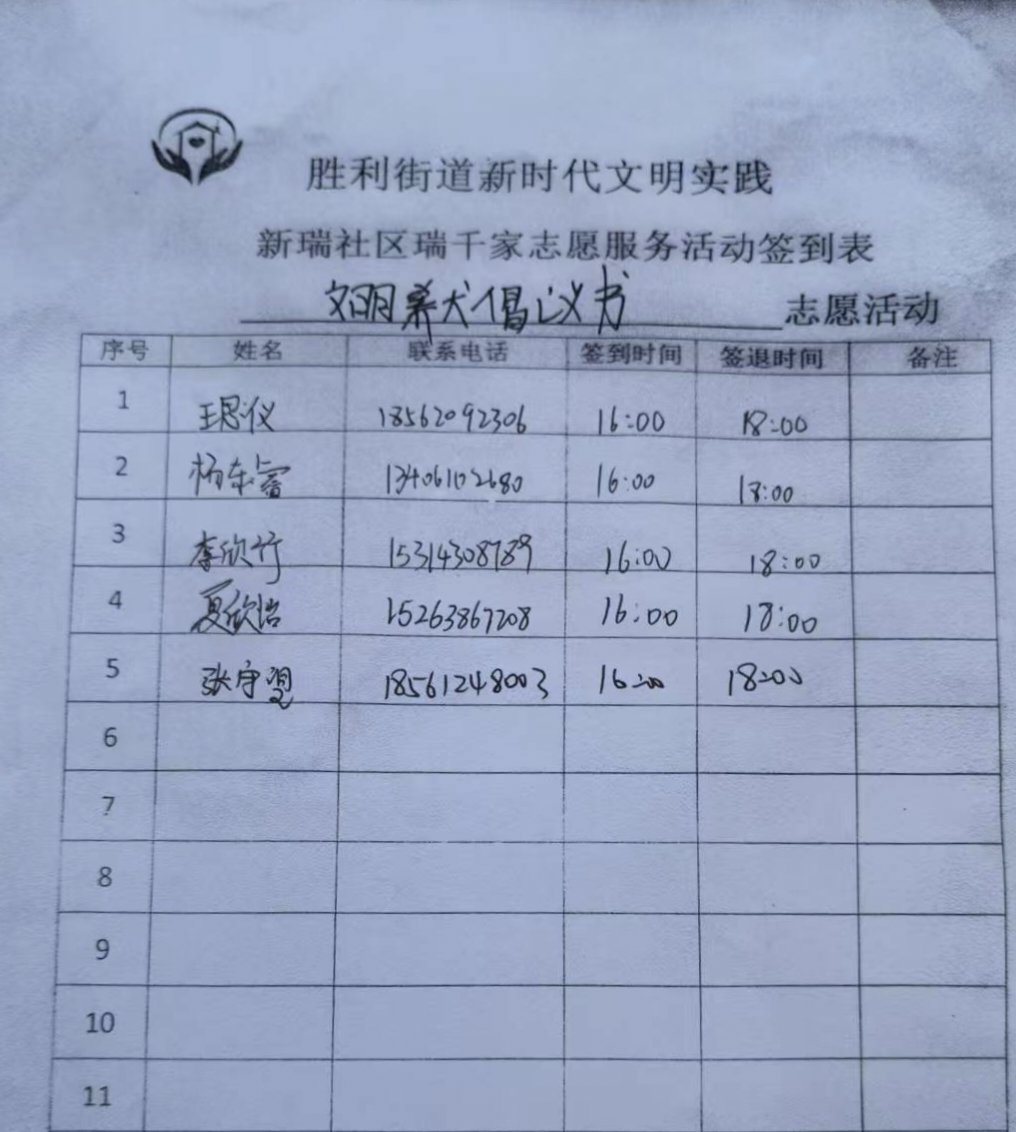 胜利街道新时代文明实践
新瑞社区瑞千家志愿服务活动签到表
文明养犬倡议书 志愿活动
序号 姓名 联系电话 签到时间 签退时间 备注
1 王思仪 18562092306 16:00 18:00
2 杨东睿 13406102680 16:00 18:00
3 李欣竹 15314308789 16:00 18:00
4 夏欣怡 15263867208 16:00 18:00
5 张守望 18561248003 16:00 18:00
6
7
8
9
10
11